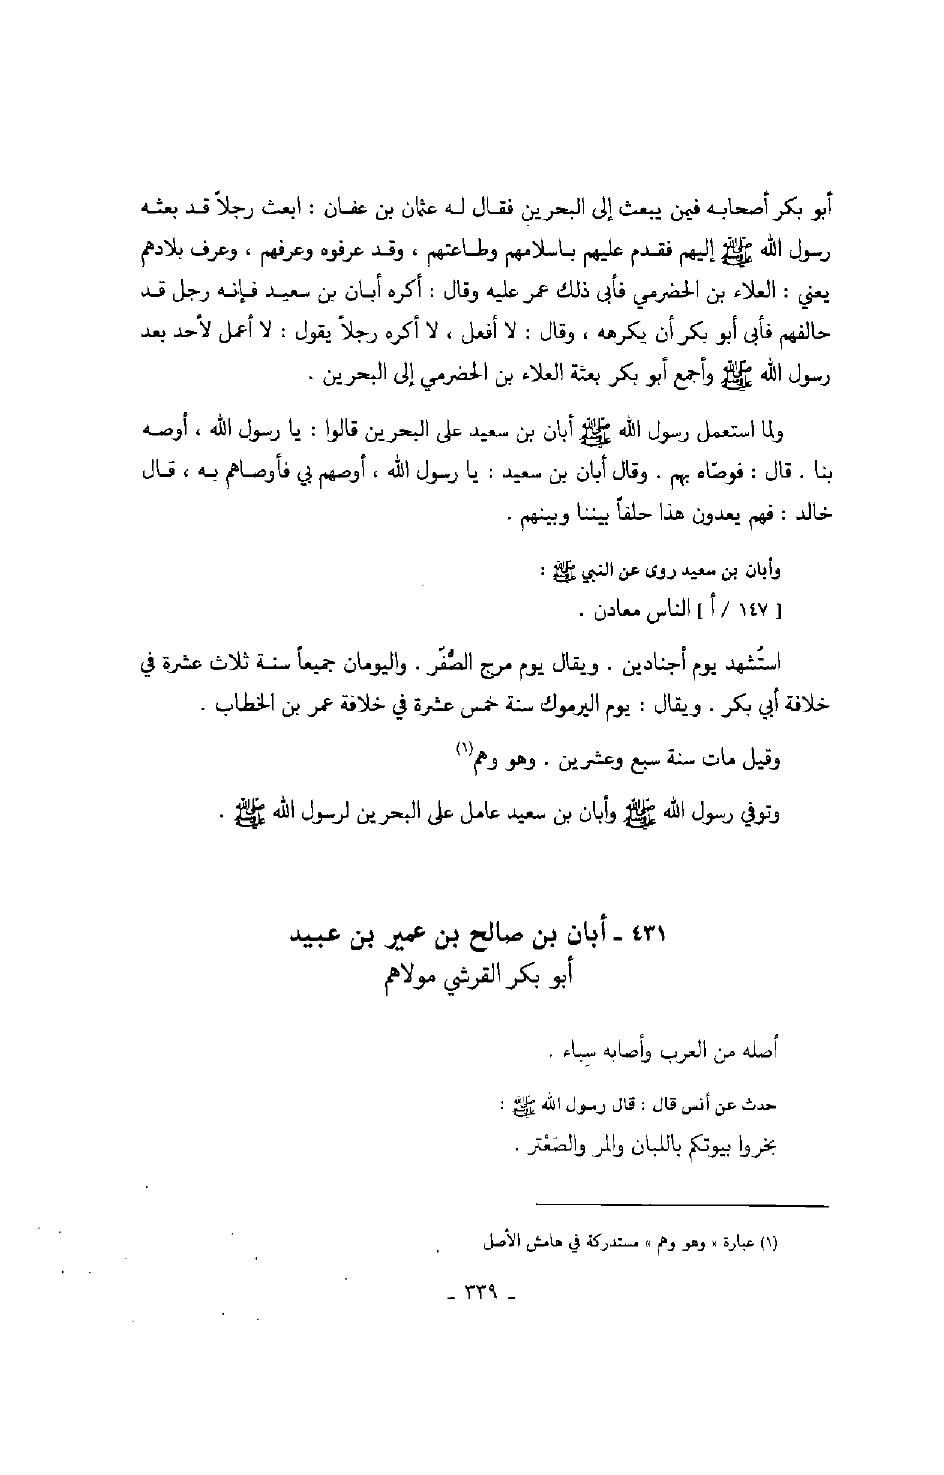 أبو بكر أصحابه فيمن يبعث إلى البحرين فقال له عثمان بن عفان : ابعث رجلاً قد بعثه
رسول الله ﷺ إليهم فقدم عليهم باسلامهم وطاعتهم ، وقد عرفوه وعرفهم ، وعرف بلادهم
يعني : العلاء بن الحضرمي فأبى ذلك عمر عليه وقال : أكره أبان بن سعيد فإنه رجل قد
حالفهم فأبى أبو بكر أن يكرهه ، وقال : لا أفعل ، لا أكره رجلاً يقول : لا أعمل لأحد بعد
رسول الله ﷺ وأجمع أبو بكر بعثة العلاء بن الحضرمي إلى البحرين .
ولما استعمل رسول الله ﷺ أبان بن سعيد على البحرين قالوا : يا رسول الله ، أوصه
بنا . قال : فوصّاه بهم . وقال أبان بن سعيد : يا رسول الله ، أوصهم بي فأوصاهم به ، قال
خالد : فهم يعدون هذا حلفاً بيننا وبينهم .
وأبان بن سعيد روى عن النبي ﷺ :
[ ١٤٧ / أ ] الناس معادن .
استُشهد يوم أجنادين . ويقال يوم مرج الصُّفّر . واليومان جميعاً سنة ثلاث عشرة في
خلافة أبي بكر . ويقال : يوم اليرموك سنة خمس عشرة في خلافة عمر بن الخطاب .
وقيل مات سنة سبع وعشرين . وهو وهم(١)
وتوفي رسول الله ﷺ وأبان بن سعيد عامل على البحرين لرسول الله ﷺ .
٤٣١ - أبان بن صالح بن عمير بن عبيد
أبو بكر القرشي مولاهم
أصله من العرب وأصابه سِباء .
حدث عن أنس قال : قال رسول الله ﷺ :
بخروا بيوتكم باللبان والمر والصَعْتر .
(١) عبارة « وهو وهم » مستدركة في هامش الأصل
- ٣٣٩ -